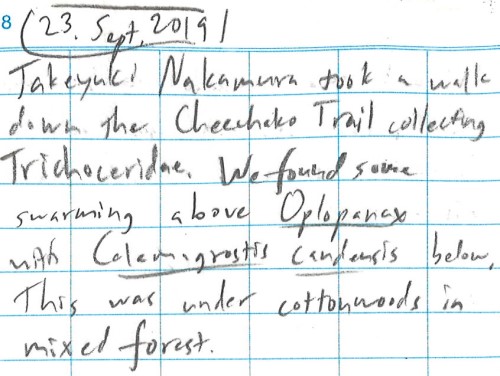 8 (23. Sept. 2019)
Takeyuki Nakamura took a walk
down the Cheechako Trail collecting
Trichoceridae. We found some
swarming above Oplopanax
with Calamagrostis candensis below.
This was under cottonwoods in
mixed forest.